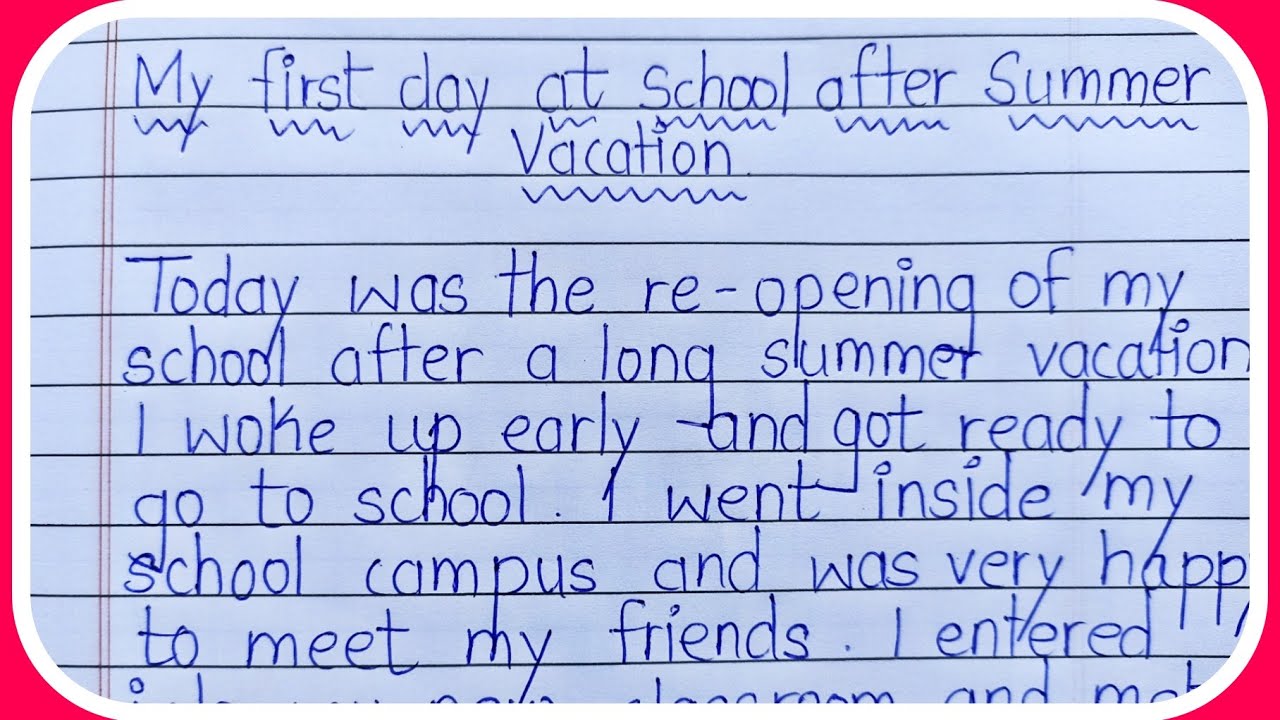 My first day at School after Summer
Vacation.
Today was the re-opening of my
school after a long summer vacation
I woke up early and got ready to
go to school. I went inside my
school campus and was very happy
to meet my friends. I entered
classroom and